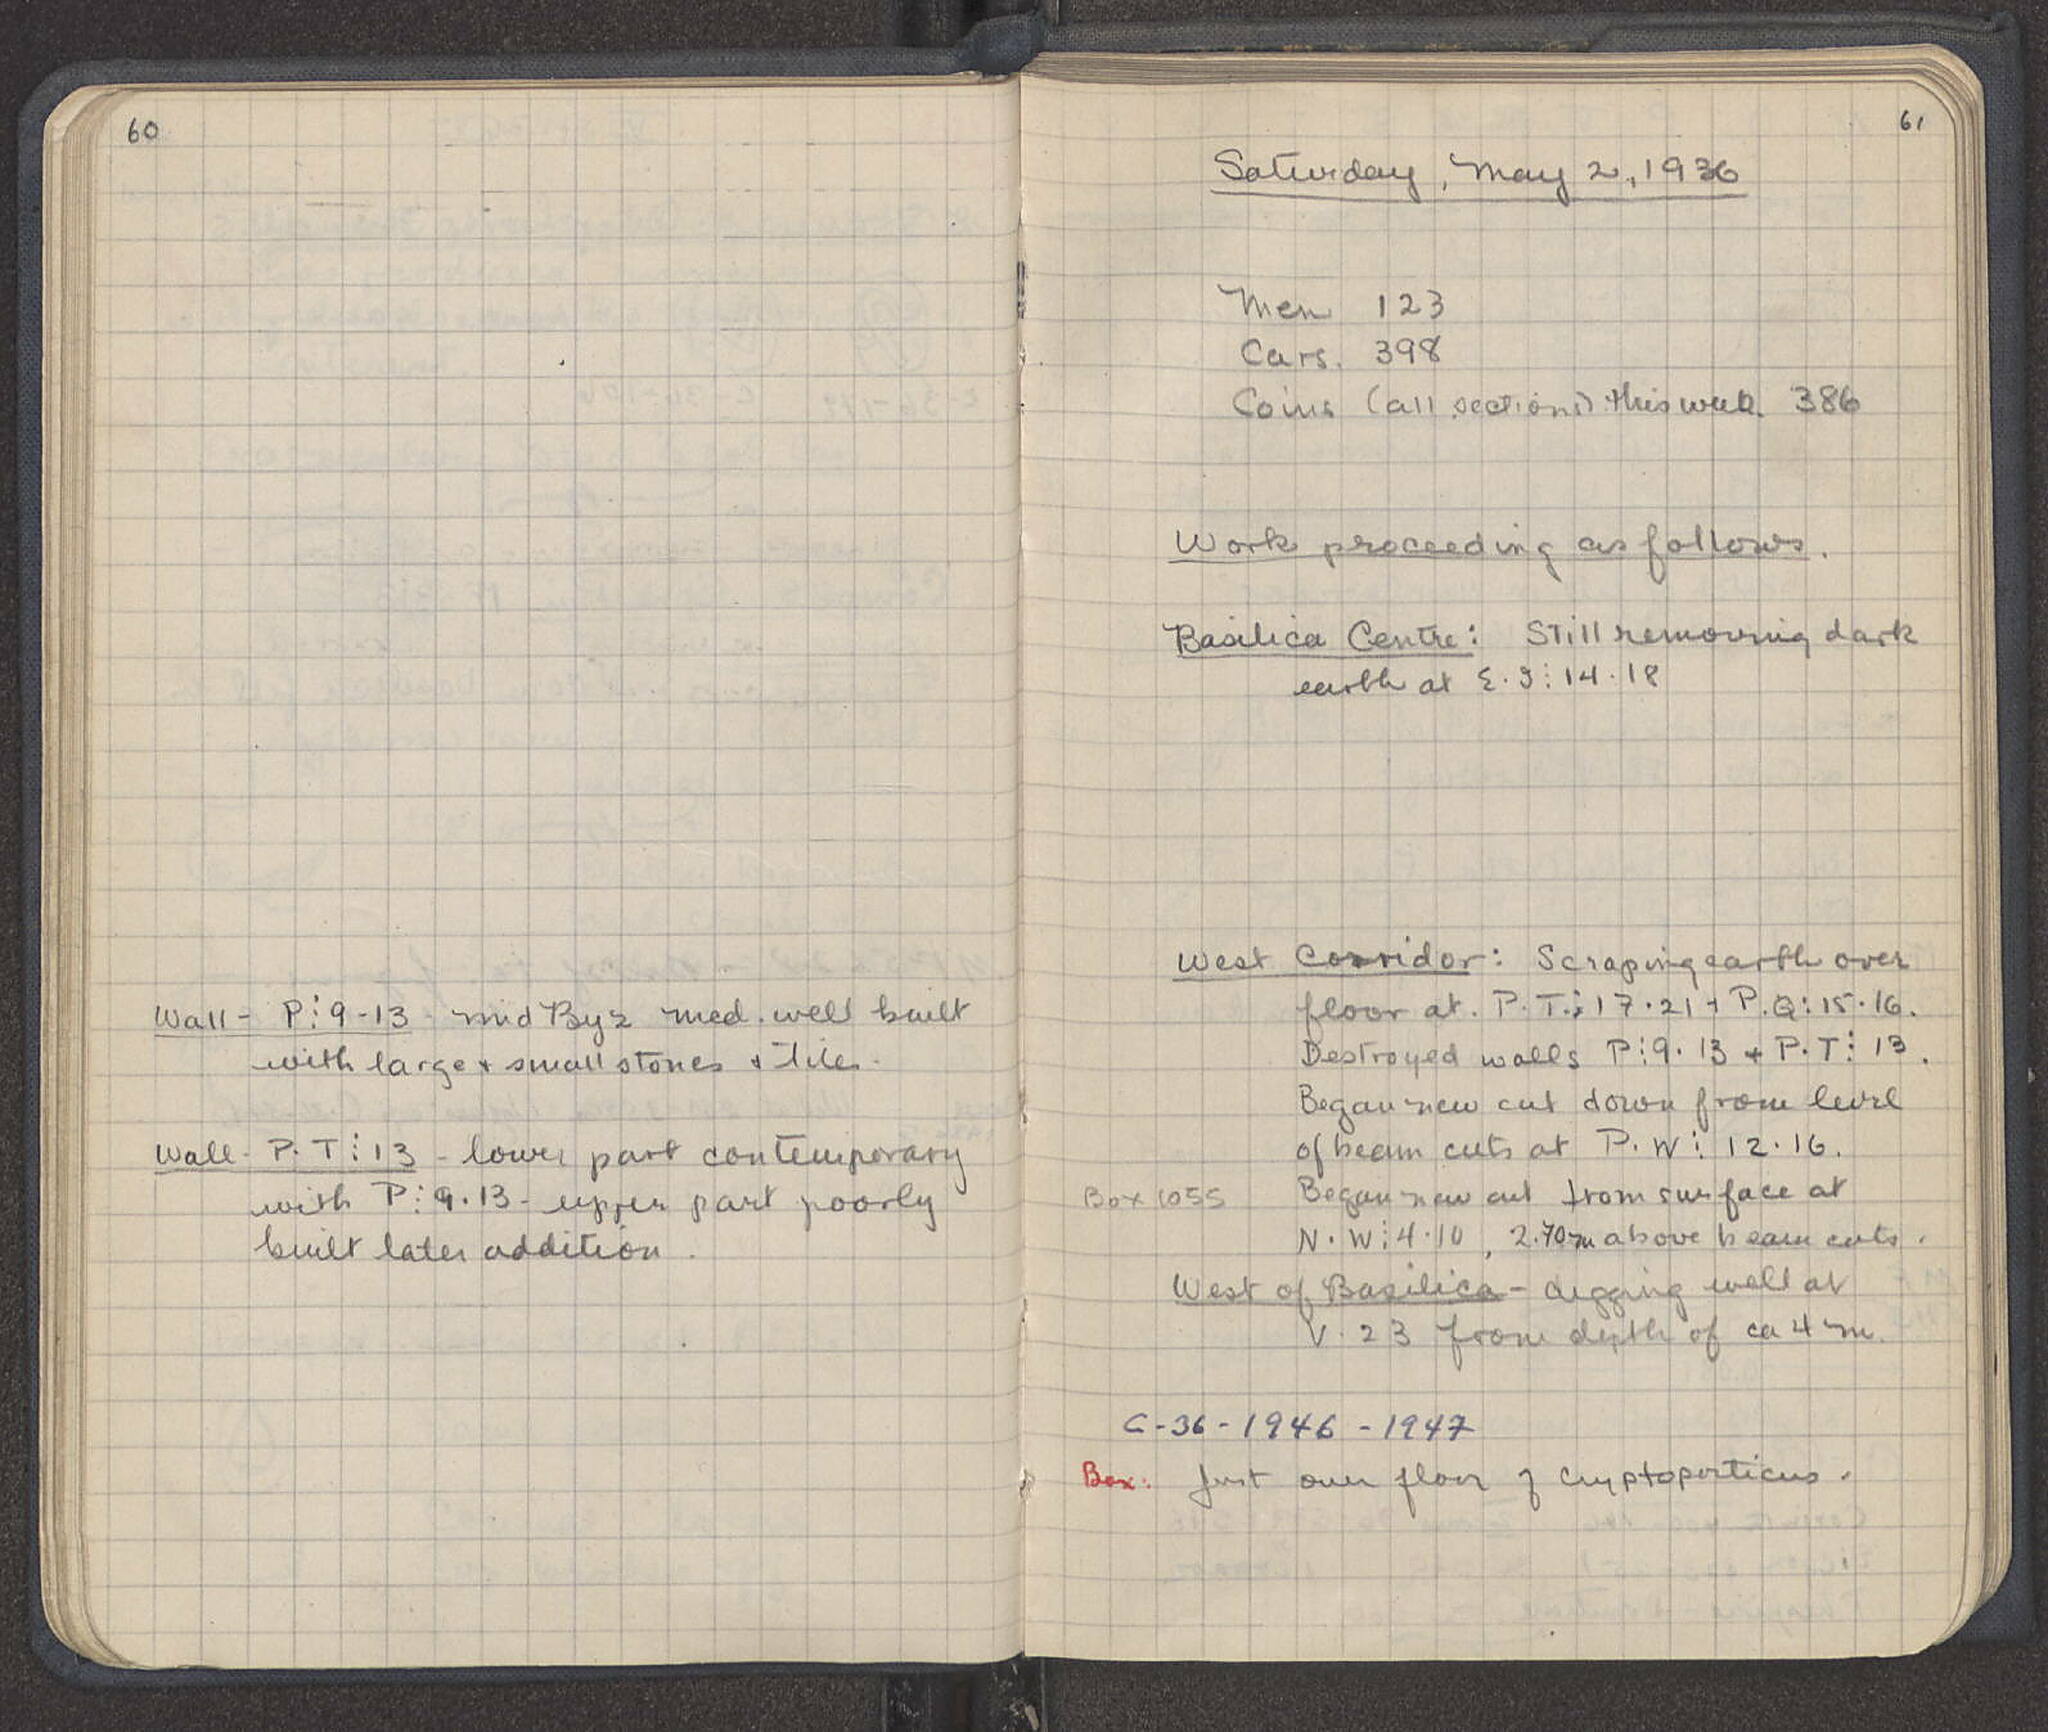 60
Wall - P:9-13 - mid Byz med. well built
with large + small stones + tile.
Wall - P.T:13 - lower part contemporary
with P:9.13 - upper part poorly
built later addition.
61
Saturday, May 2, 1936
Men 123
Cars. 398
Coins (all sections) this week. 386
Work proceeding as follows.
Basilica Centre: Still removing dark
earth at Σ.I:14.18
West Corridor: Scraping earth over
floor at. P.T.:17.21 + P.Q:15.16.
Destroyed walls P:9.13 + P.T:13.
Began new cut down from level
of beam cuts at P.W:12.16.
Box 1055 Began new cut from surface at
N.W:4.10, 2.70m above beam cuts.
West of Basilica - digging well at
V.23 from depth of ca 4 m.
C-36-1946-1947
Box: Just over floor of cryptoporticus.